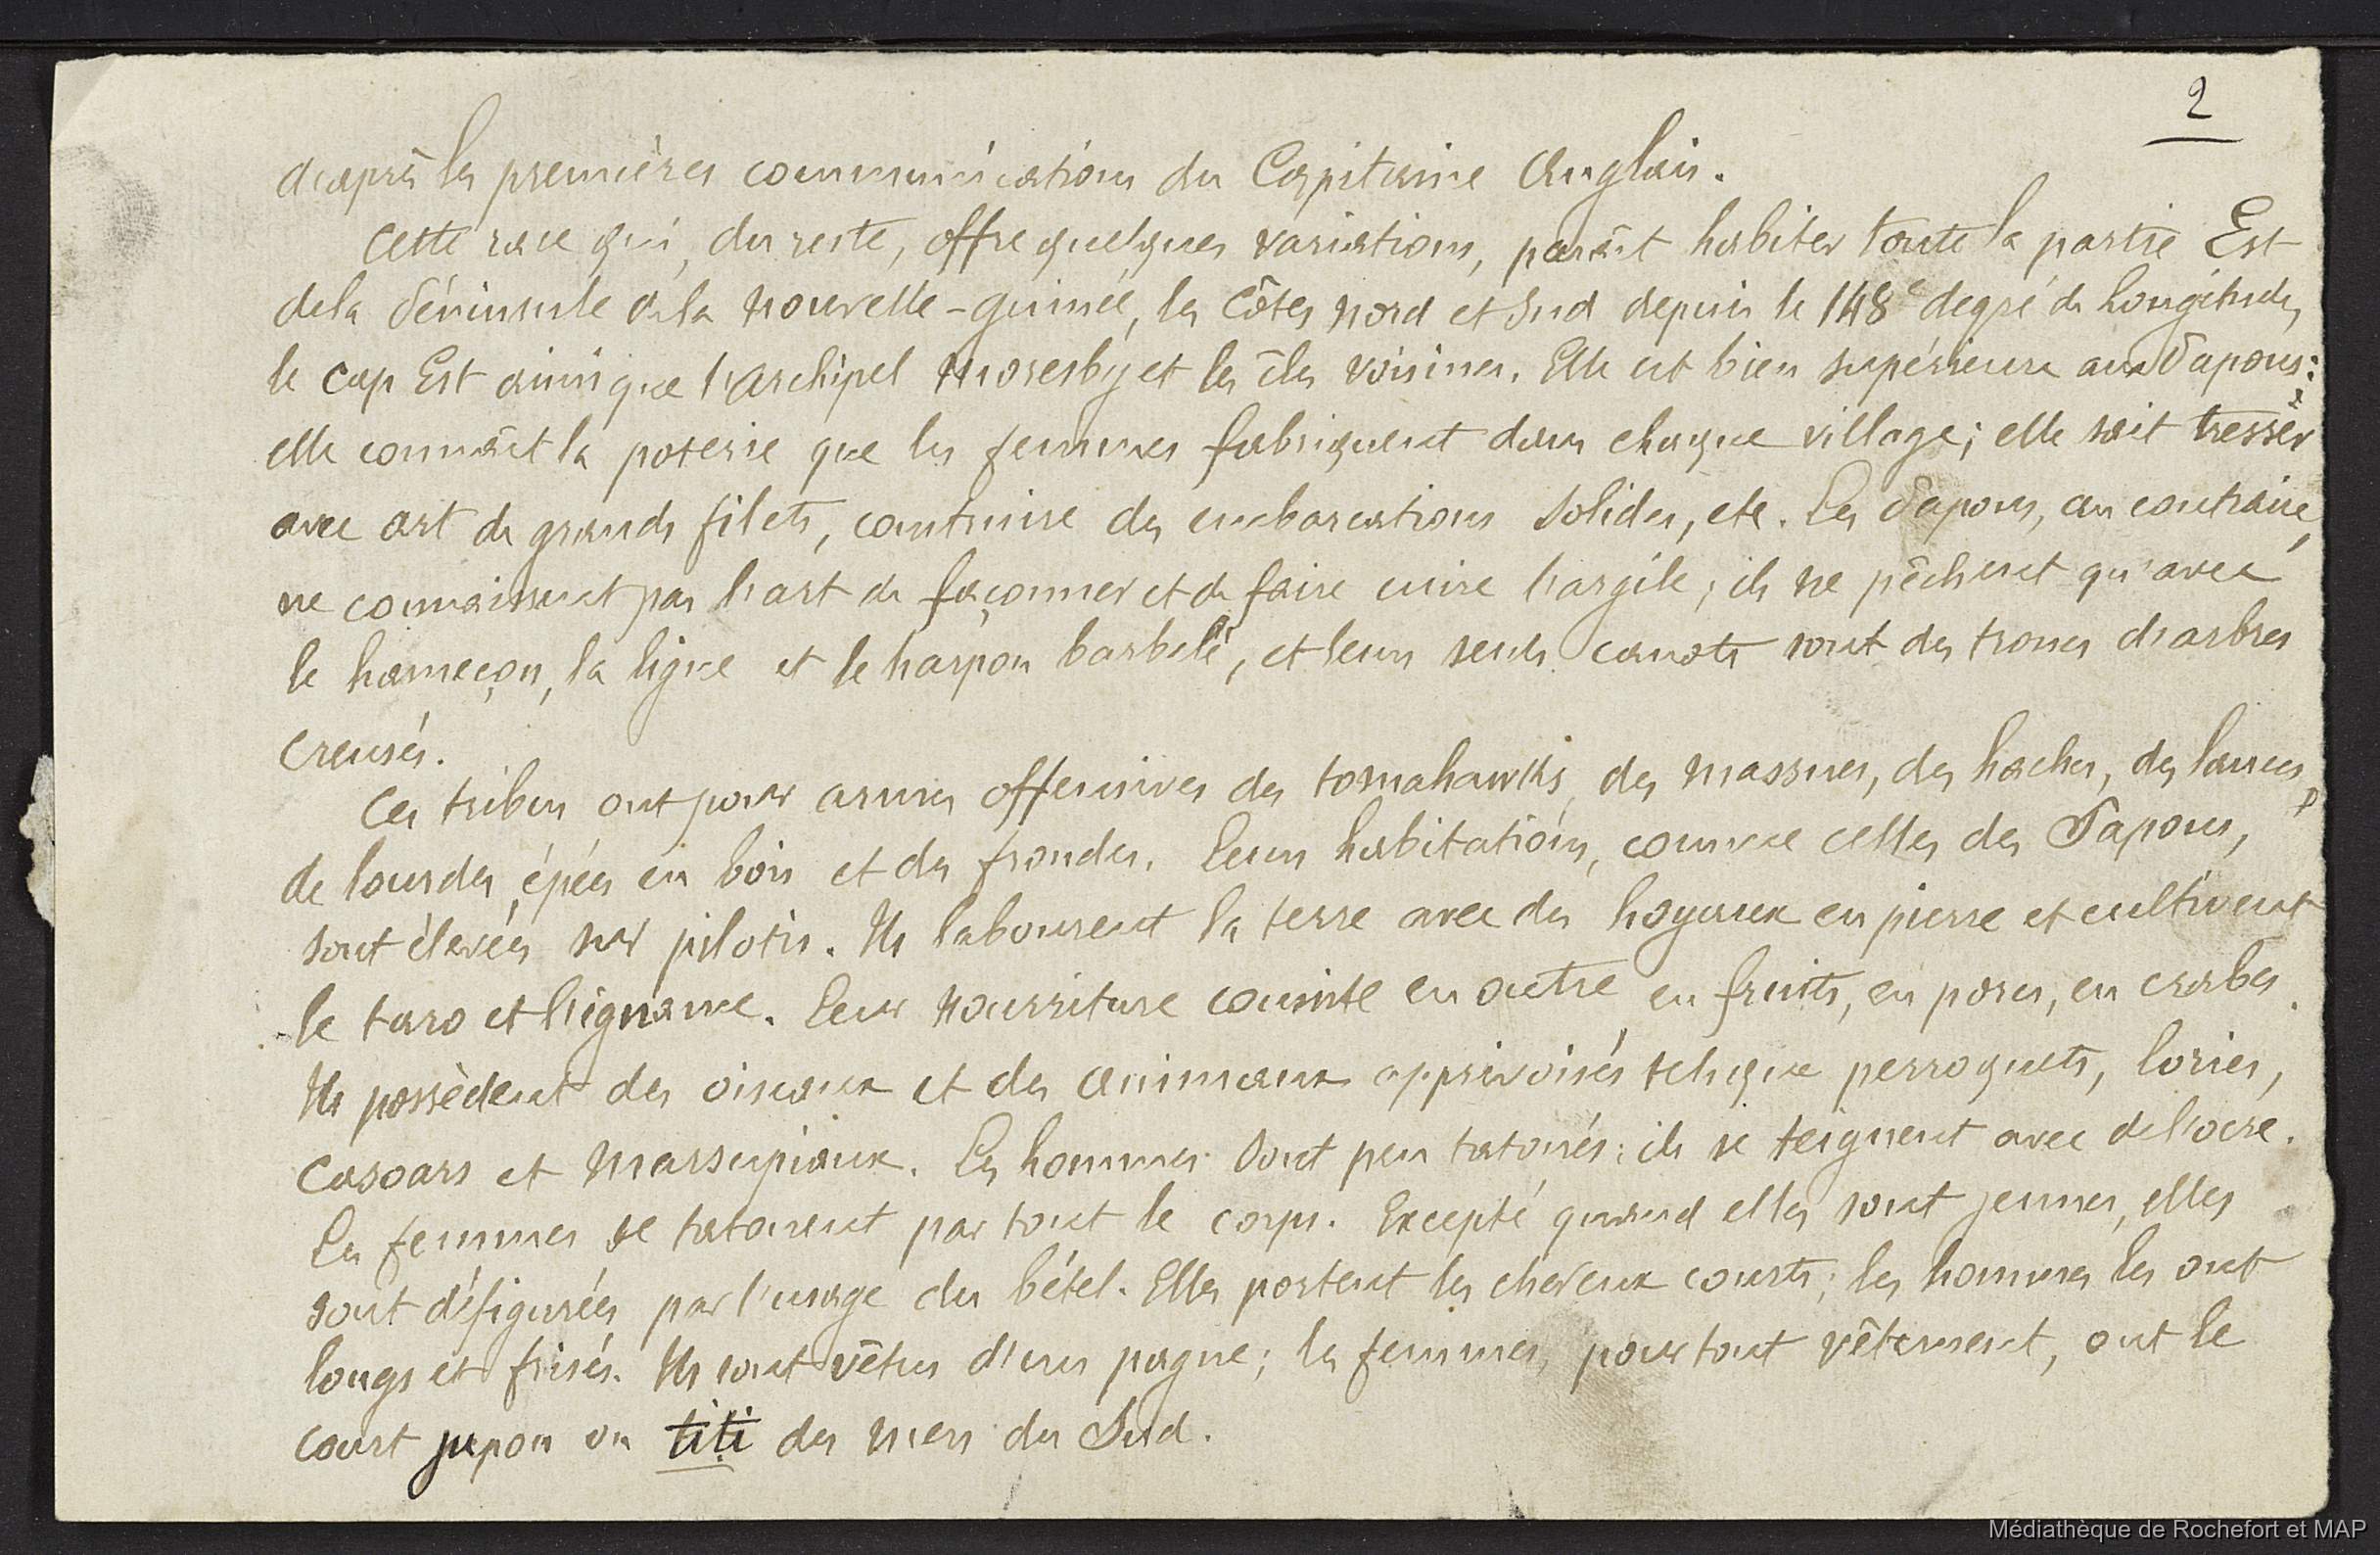 2
d'après les premières communications du Capitaine Anglais.
Cette race qui, du reste, offre quelques variations, paraît habiter toute la partie Est
de la Péninsule de la Nouvelle-Guinée, les Côtes Nord et Sud depuis le 148e degré de Longitude,
le Cap Est ainsi que l'Archipel Moresby et les îles voisines. Elle est bien supérieure aux Papous:
elle connaît la poterie que les femmes fabriquent dans chaque village; elle sait tresser
avec art de grands filets, construire des embarcations solides, etc. Les Papous, au contraire,
ne connaissent pas l'art de façonner et de faire cuire l'argile; ils ne pêchent qu'avec
le hameçon, la ligne et le harpon barbelé, et leurs seuls canots sont des troncs d'arbres
creusés.
Ces tribus ont pour armes offensives des tomahawks, des massues, des haches, des lances,
de lourdes épées en bois et des frondes. Leurs habitations, comme celles des Papous,
sont élevées sur pilotis. Ils labourent la terre avec des hoyaux en pierre et cultivent
le taro et l'igname. Leur nourriture consiste en outre en fruits, en porcs, en crabes.
Ils possèdent des oiseaux et des animaux apprivoisés tels que perroquets, lories,
casoars et marsupiaux. Les hommes sont peu tatoués; ils se teignent avec de l'ocre.
Les femmes se tatouent par tout le corps. Excepté quand elles sont jeunes, elles
sont défigurées par l'usage du bétel. Elles portent les cheveux courts; les hommes les ont
longs et frisés. Ils sont vêtus d'un pagne; les femmes, pour tout vêtement, ont le
court jupon ou titi des mers du Sud.
Médiathèque de Rochefort et MAP